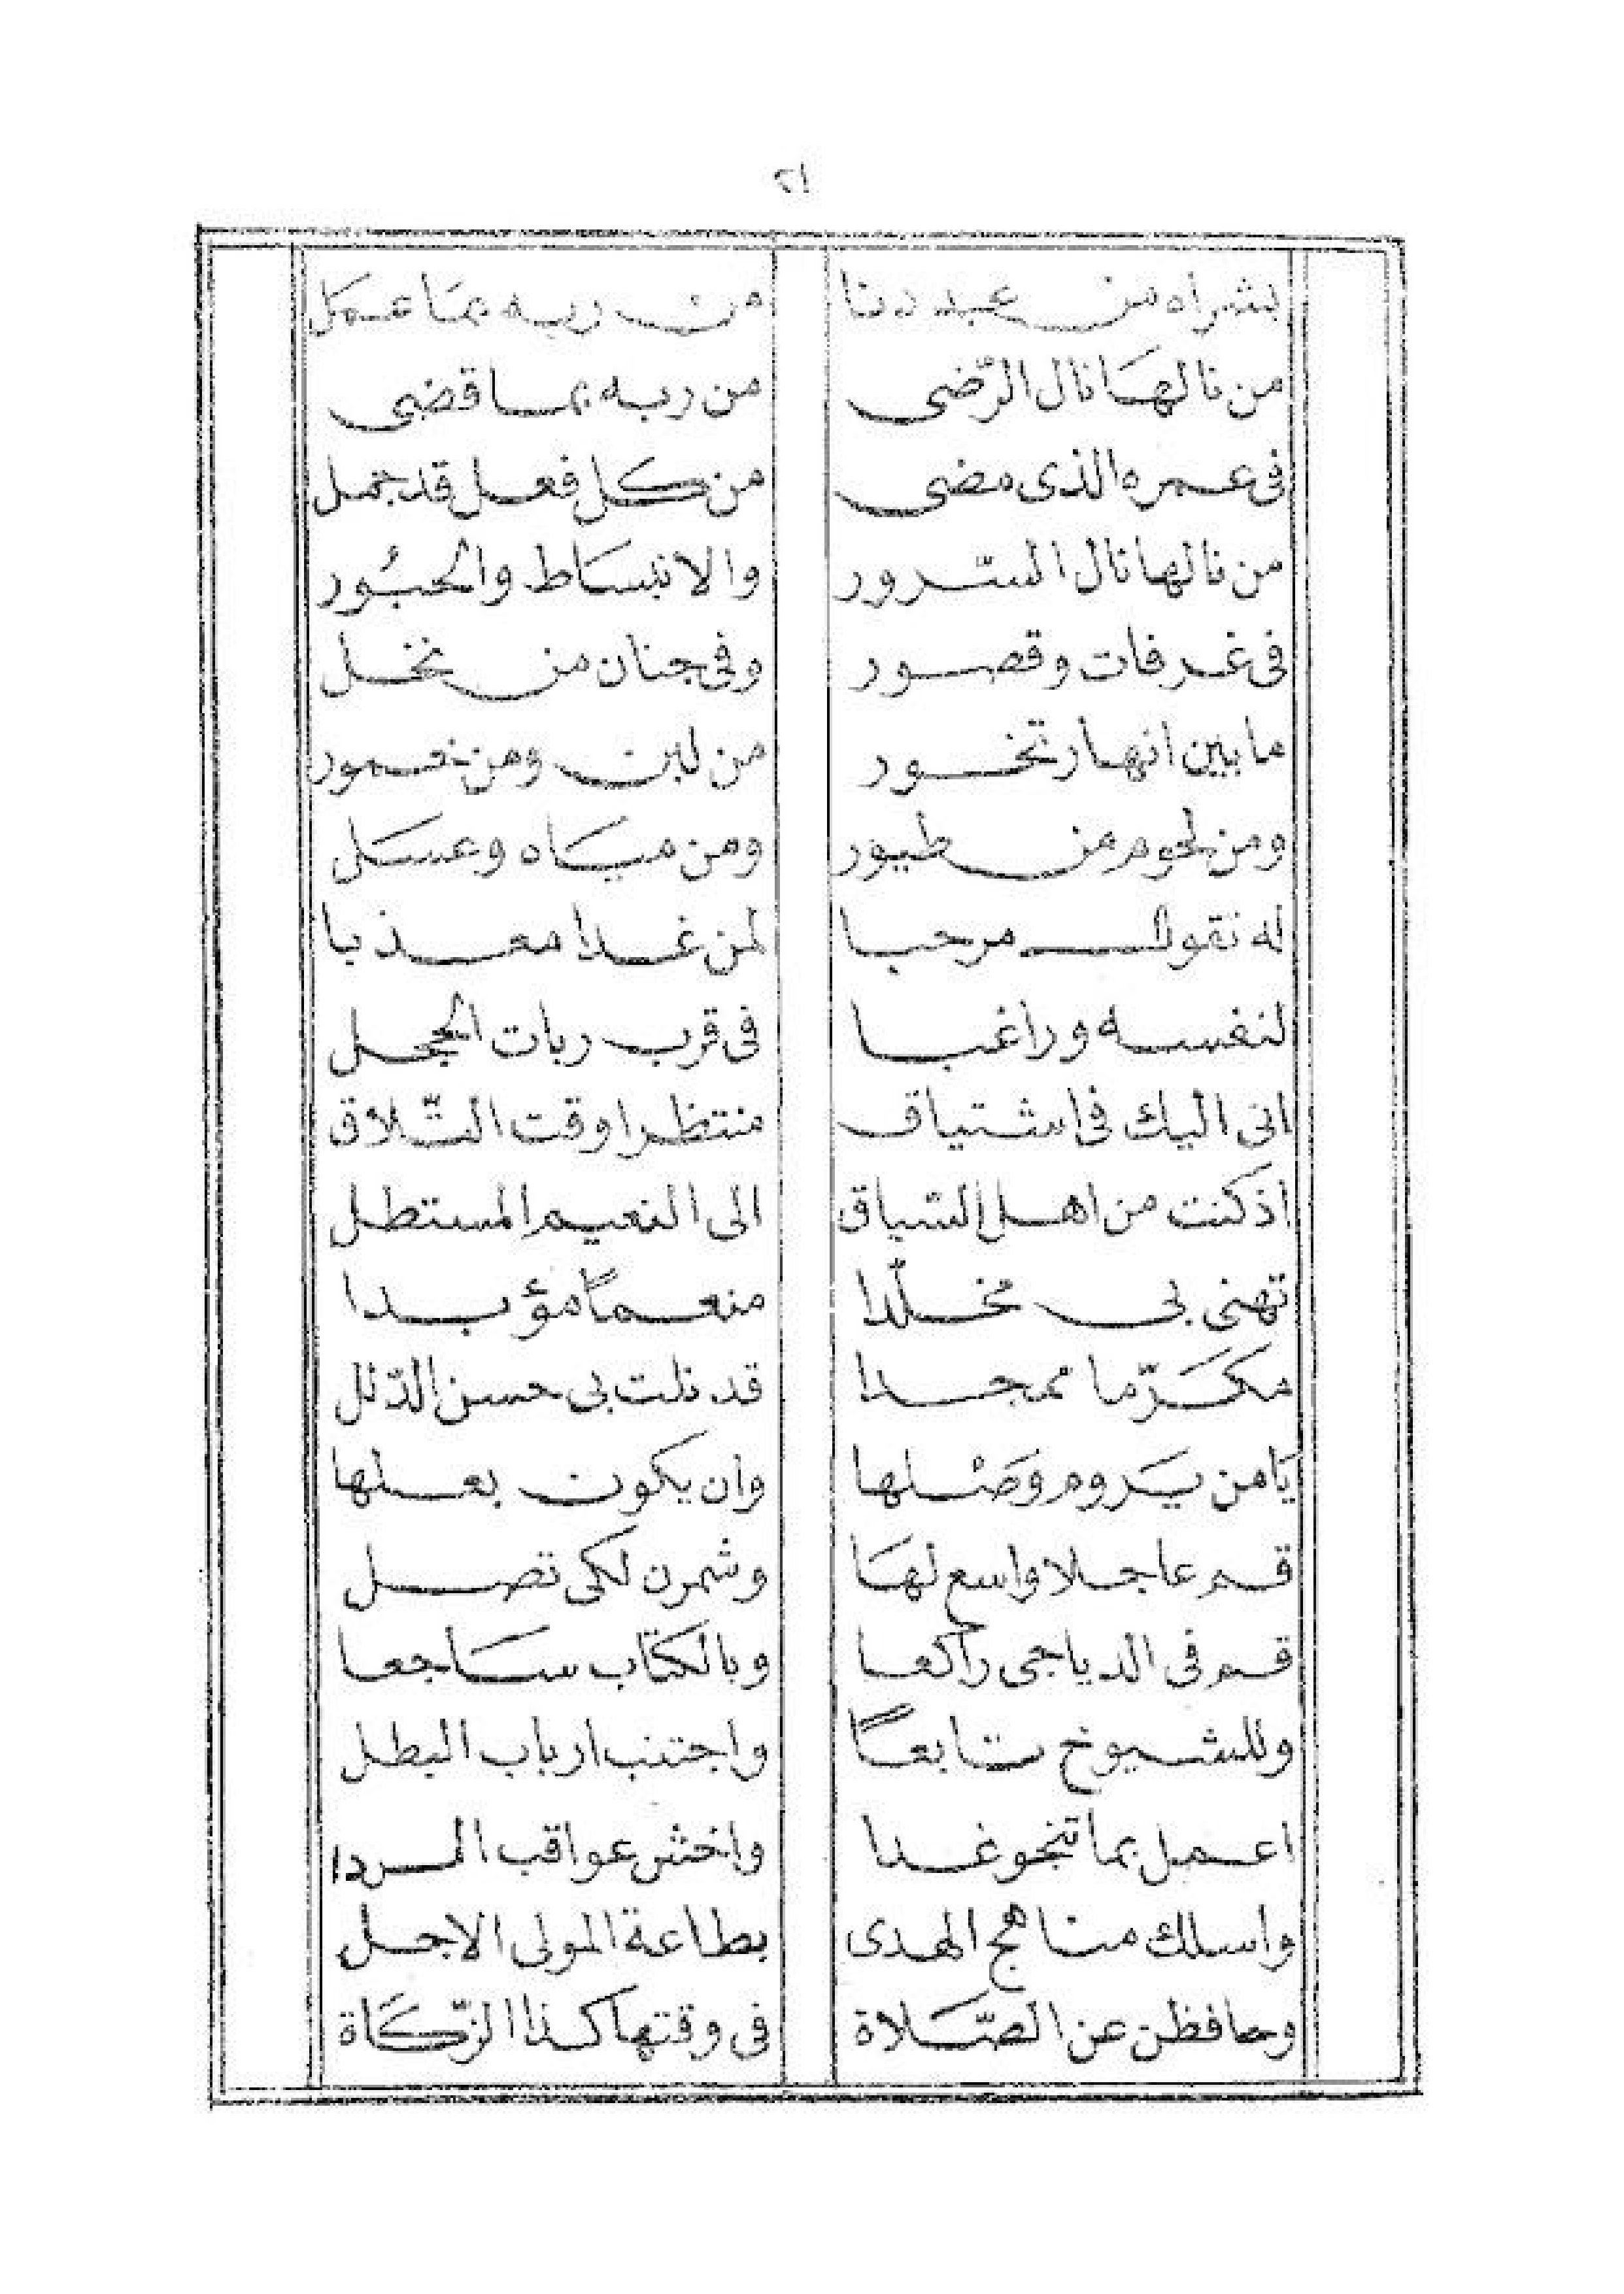 ٢١
بشراه من عبد دنا من ربه بما عمل
من نالها نال الرّضى من ربه بما قضى
فى عمره الذى مضى من كل فعل قد جمل
من نالها نال السّرور والانبساط والحبُور
فى غرفات وقصور وفى جنان من نخل
ما بين انهار تخور من لبن ومن خمور
ومن لحوم من طيور ومن مياه وعسل
له نقول مرحبا لمن غدا معذبا
لنفسه وراغبا فى قرب ربات الحجل
انى اليك فى اشتياق منتظرا وقت التّلاق
اذ كنت من اهل السّباق الى النعيم المستطل
تهنى بى مخلّدا منعماً مؤبدا
مكرّما ممجدا قد نلت بى حسن الدّلل
يا من يروم وصْلها وان يكون بعلها
قم عاجلا واسع لها وشمرن لكى تصل
قم فى الدياجى راكعا وبالكتاب ساجعا
وللشيوخ تابعاً واجتنب ارباب البطل
اعمل بما تنجو غدا واخش عواقب الردا
واسلك مناهج الهدى بطاعة المولى الاجل
وحافظن عن الصّلاة فى وقتها كذا الزّكاة